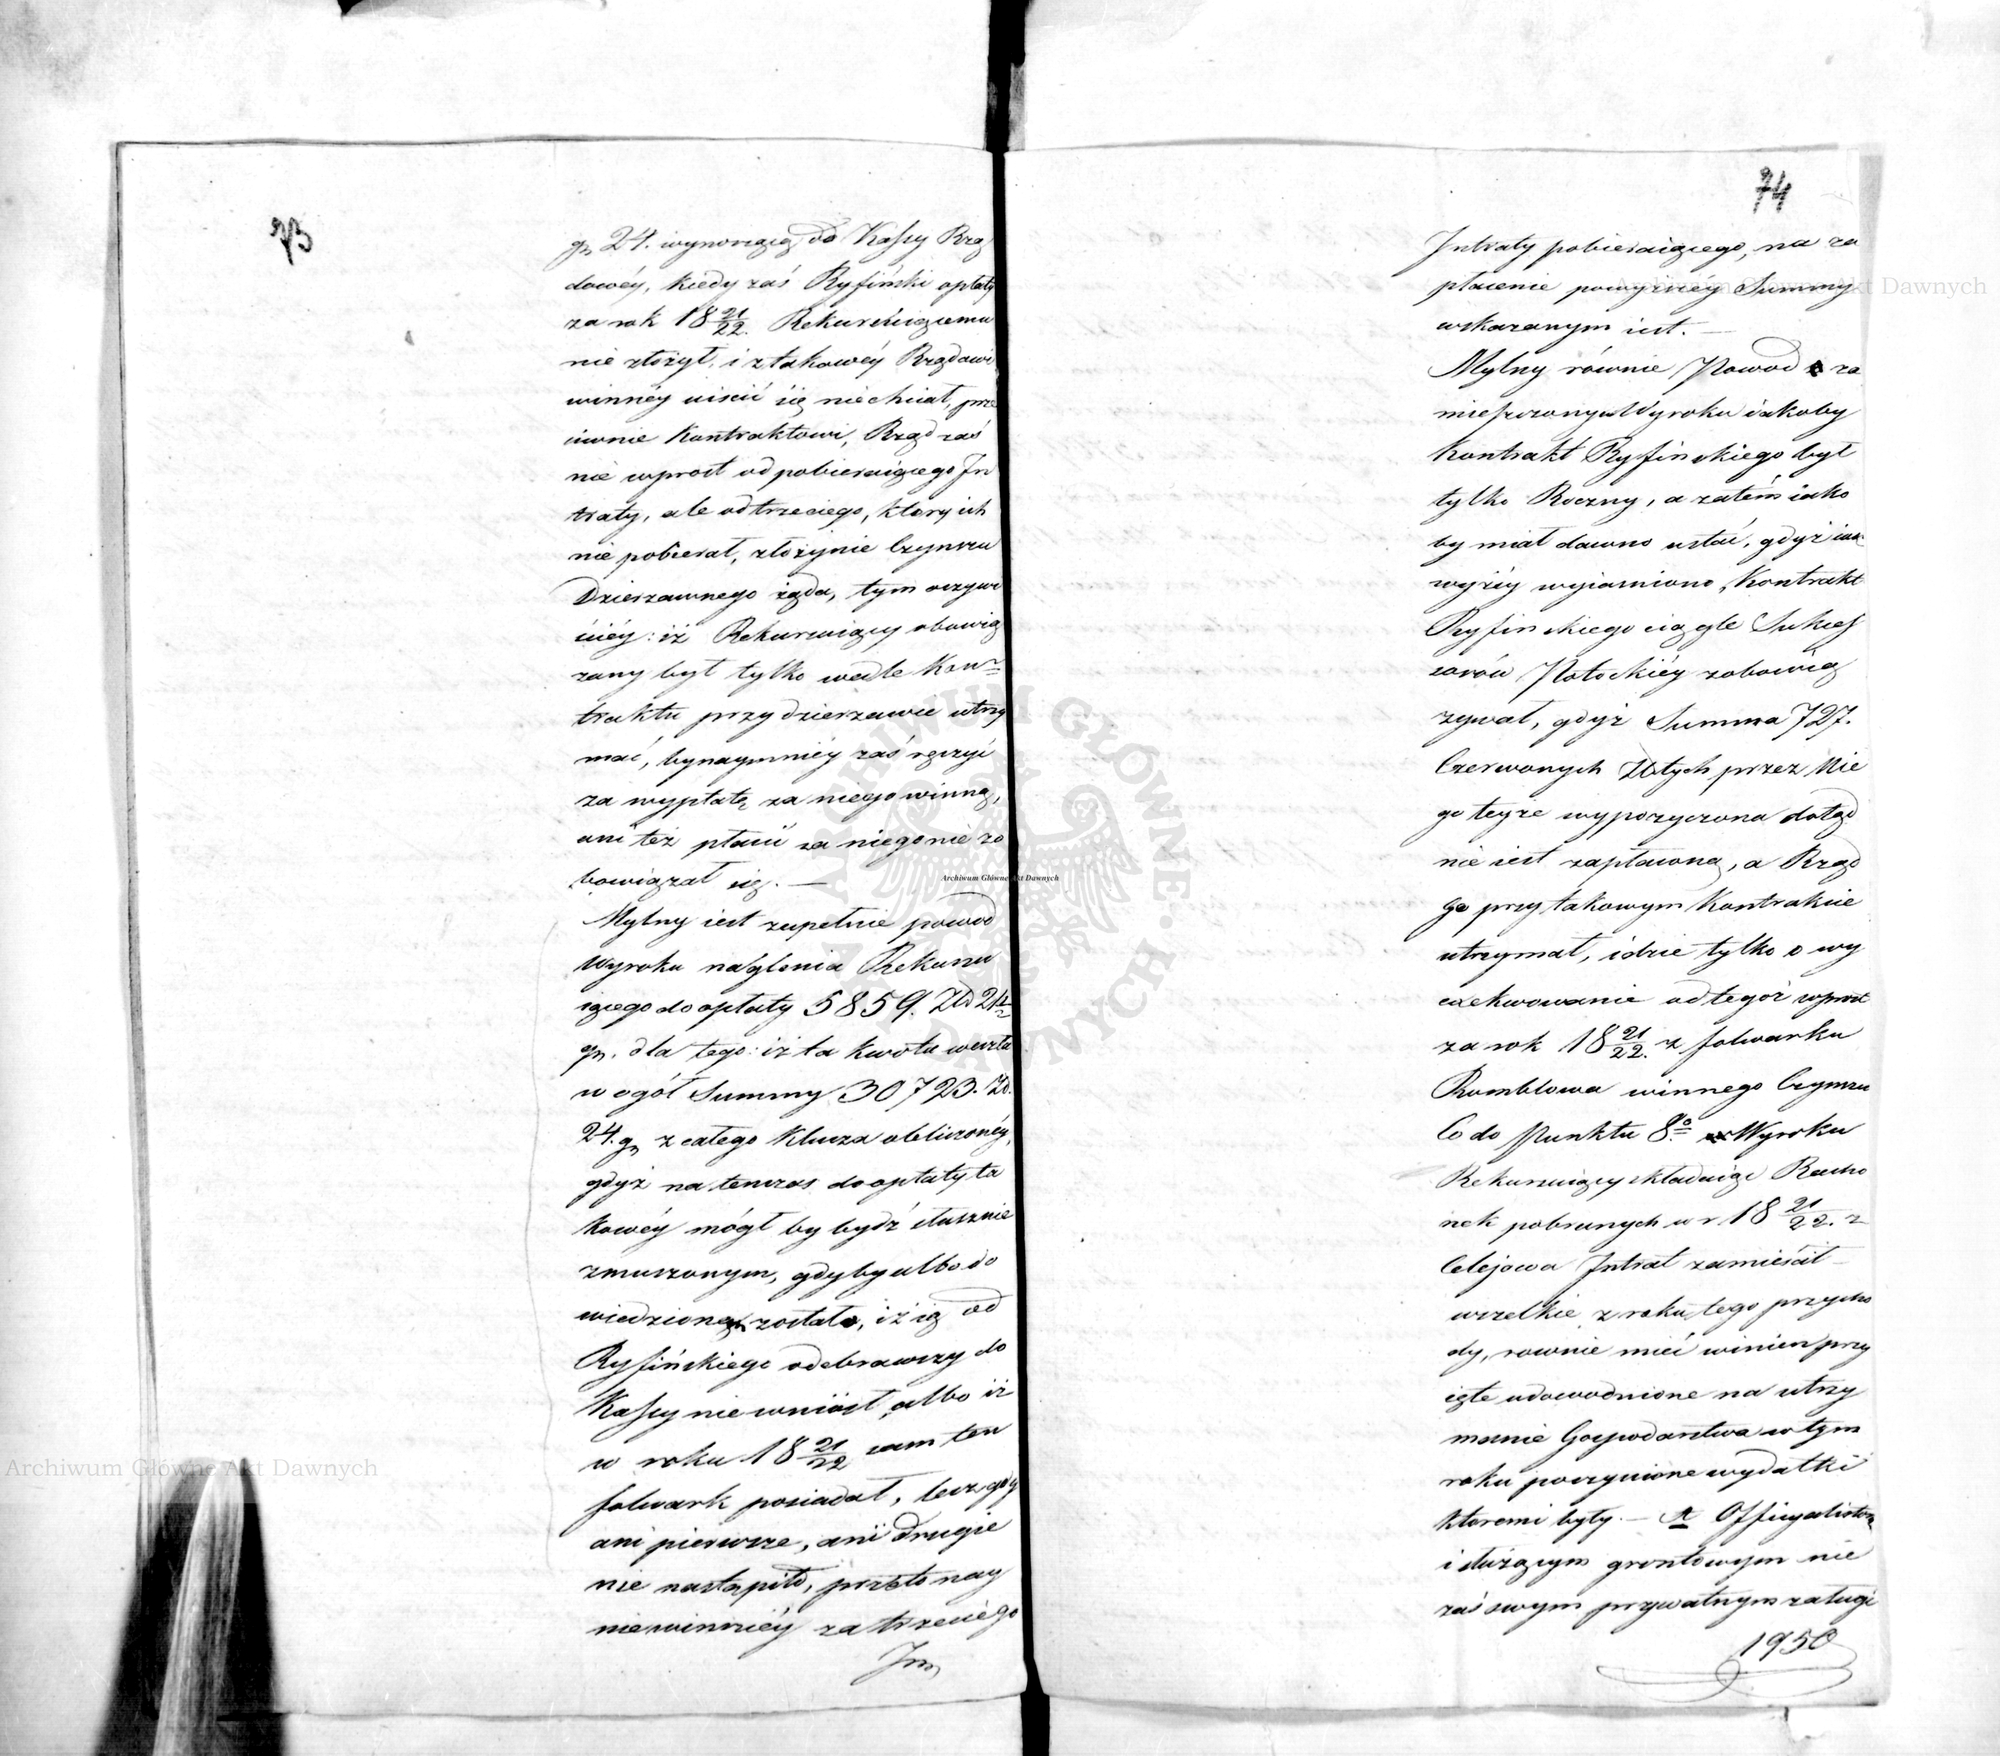 73
gr 24. wynoszącą do Kassy Rzą
dowéy, kiedy zaś Ryfiński opłaty
za rok 18 21/22. Rekursuiącemu
nie złożył, i z takowéy Rządowi
winnéy uiścić się niechciał, prze
ciwnie Kontraktowi, Rząd zaś
nie wprost od pobieraiącego In
traty, ale od trzeciego, który ich
nie pobierał, złożenie Czynszu
Dzierzawnego żąda, tym oczywi
ściéy: iż Rekursuiący obowią
zany był tylko wedle Kon=
traktu przy dzierzawie utrzy
mać, bynaymniéy zaś ręczyć
za wypłatę za niego winną,
ani też płacić za niego nie zo
bowiązał się. —
Mylny iest zupełnie powód
Wyroku naglenia Rekursu
iącego do opłaty 5859. Zł 24
gr. dla tego: iż ta kwota weszła
w ogół Summy 30723. Zł.
24. gr z całego Klucza obliczonéy,
gdyż na tenczas do opłaty ta
kowéy mógł by bydź słusznie
zmuszonym, gdyby albo do
wiedziono zostało, iż ią od
Ryfińskiego odebrawszy do
Kassy nie wniósł, albo iż
w roku 18 21/22 sam ten
folwark posiadał, lecz gdy
ani pierwsze, ani drugie
nie nastąpiło, przeto nay
niewinniéy za trzeciego
In
74
Intraty pobieraiącego, na za
płacenie powyższéy Summy
wskazanym iest. —
Mylny równie Powód za
mieszczony Wyroku iakoby
Kontrakt Ryfińskiego był
tylko Roczny, a zatém iako
by miał dawno ustać, gdyż iak
wyżéy wyiaśniono, Kontrakt
Ryfińskiego ciągle Sukces
sorów Potockiéy zobowią
zywał, gdyż Summa 727.
Czerwonych Złtych przez Nie
go teyże wypożyczona dotąd
nie iest zapłaconą, a Rząd
go przy takowym Kontrakcie
utrzymał, idzie tylko o wy
exekwowanie od tegoż wprost
za rok 18 21/22. z folwarku
Rąmblowa winnego Czynszu
Co do Punktu 8o Wyroku
Rekursuiący składaiąc Rachu
nek pobranych w r. 18 21/22. z
Celejowa Intrat zamieścił —
wszelkie z roku tego przycho
dy, rownie mieć winien przy
ięte udowodnione na utrzy
manie Gospodarstwa w tym
roku poczynione wydatki
ktoremi były. — A Officyalistom
i służącym gruntowym nie
zaś swym prywatnym zasługi
1950
Archiwum Główne Akt Dawnych